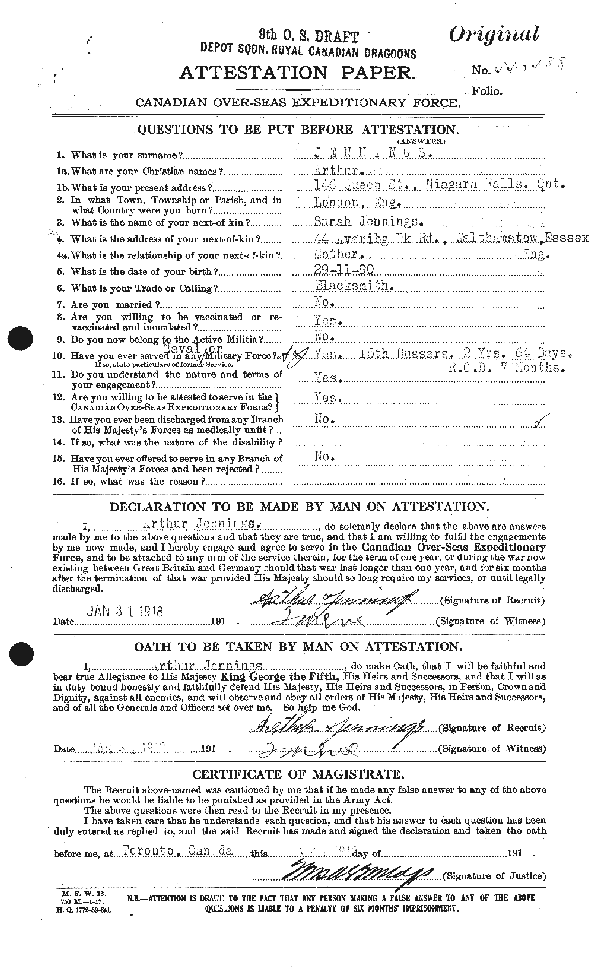 Original
9th O. S. DRAFT
DEPOT SQDN. ROYAL CANADIAN DRAGOONS
ATTESTATION PAPER.
No.
Folio.
CANADIAN OVER-SEAS EXPEDITIONARY FORCE.
QUESTIONS TO BE PUT BEFORE ATTESTATION.
(ANSWERS)
1. What is your surname? JENNINGS.
1a. What are your Christian names? Arthur.
1b. What is your present address? St., Niagara Falls. Ont.
2. In what Town, Township or Parish, and in
what Country were you born? London, Eng.
3. What is the name of your next-of kin? Sarah Jennings.
4. What is the address of your next-of-kin? 44 Rd., Walthamstow, Essex
4a. What is the relationship of your next-of-kin? Mother. Eng.
5. What is the date of your birth? 29-11-90
6. What is your Trade or Calling? Blacksmith.
7. Are you married? No.
8. Are you willing to be vaccinated or re-
vaccinated and inoculated? Yes.
9. Do you now belong to the Active Militia? No.
10. Have you ever served in any Military Force? Yes. Hussars. 2 Yrs. Days.
If so, state particulars of former Service.
R.C.D. 7 Months.
11. Do you understand the nature and terms of
your engagement? Yes.
12. Are you willing to be attested to serve in the
CANADIAN OVER-SEAS EXPEDITIONARY FORCE? Yes.
13. Have you ever been discharged from any Branch
of His Majesty's Forces as medically unfit? No.
14. If so, what was the nature of the disability?
15. Have you ever offered to serve in any Branch of
His Majesty's Forces and been rejected? No.
16. If so, what was the reason?
DECLARATION TO BE MADE BY MAN ON ATTESTATION.
I, Arthur Jennings., do solemnly declare that the above are answers
made by me to the above questions and that they are true, and that I am willing to fulfil the engagements
by me now made, and I hereby engage and agree to serve in the Canadian Over-Seas Expeditionary
Force, and to be attached to any arm of the service therein, for the term of one year, or during the war now
existing between Great Britain and Germany should that war last longer than one year, and for six months
after the termination of that war provided His Majesty should so long require my services, or until legally
discharged.
Arthur Jennings (Signature of Recruit)
Date JAN 31 1918 191 (Signature of Witness)
OATH TO BE TAKEN BY MAN ON ATTESTATION.
I, Arthur Jennings, do make Oath, that I will be faithful and
bear true Allegiance to His Majesty King George the Fifth, His Heirs and Successors, and that I will as
in duty bound honestly and faithfully defend His Majesty, His Heirs and Successors, in Person, Crown and
Dignity, against all enemies, and will observe and obey all orders of His Majesty, His Heirs and Successors,
and of all the Generals and Officers set over me. So help me God.
Arthur Jennings (Signature of Recruit)
Date 191 (Signature of Witness)
CERTIFICATE OF MAGISTRATE.
The Recruit above-named was cautioned by me that if he made any false answer to any of the above
questions he would be liable to be punished as provided in the Army Act.
The above questions were then read to the Recruit in my presence.
I have taken care that he understands each question, and that his answer to each question has been
duly entered as replied to, and the said Recruit has made and signed the declaration and taken the oath
before me, at Toronto, Canada this day of 191
(Signature of Justice)
M. F. W. 23.
H. Q. 1772-39-841.
N.B.—ATTENTION IS DRAWN TO THE FACT THAT ANY PERSON MAKING A FALSE ANSWER TO ANY OF THE ABOVE
QUESTIONS IS LIABLE TO A PENALTY OF SIX MONTHS' IMPRISONMENT.